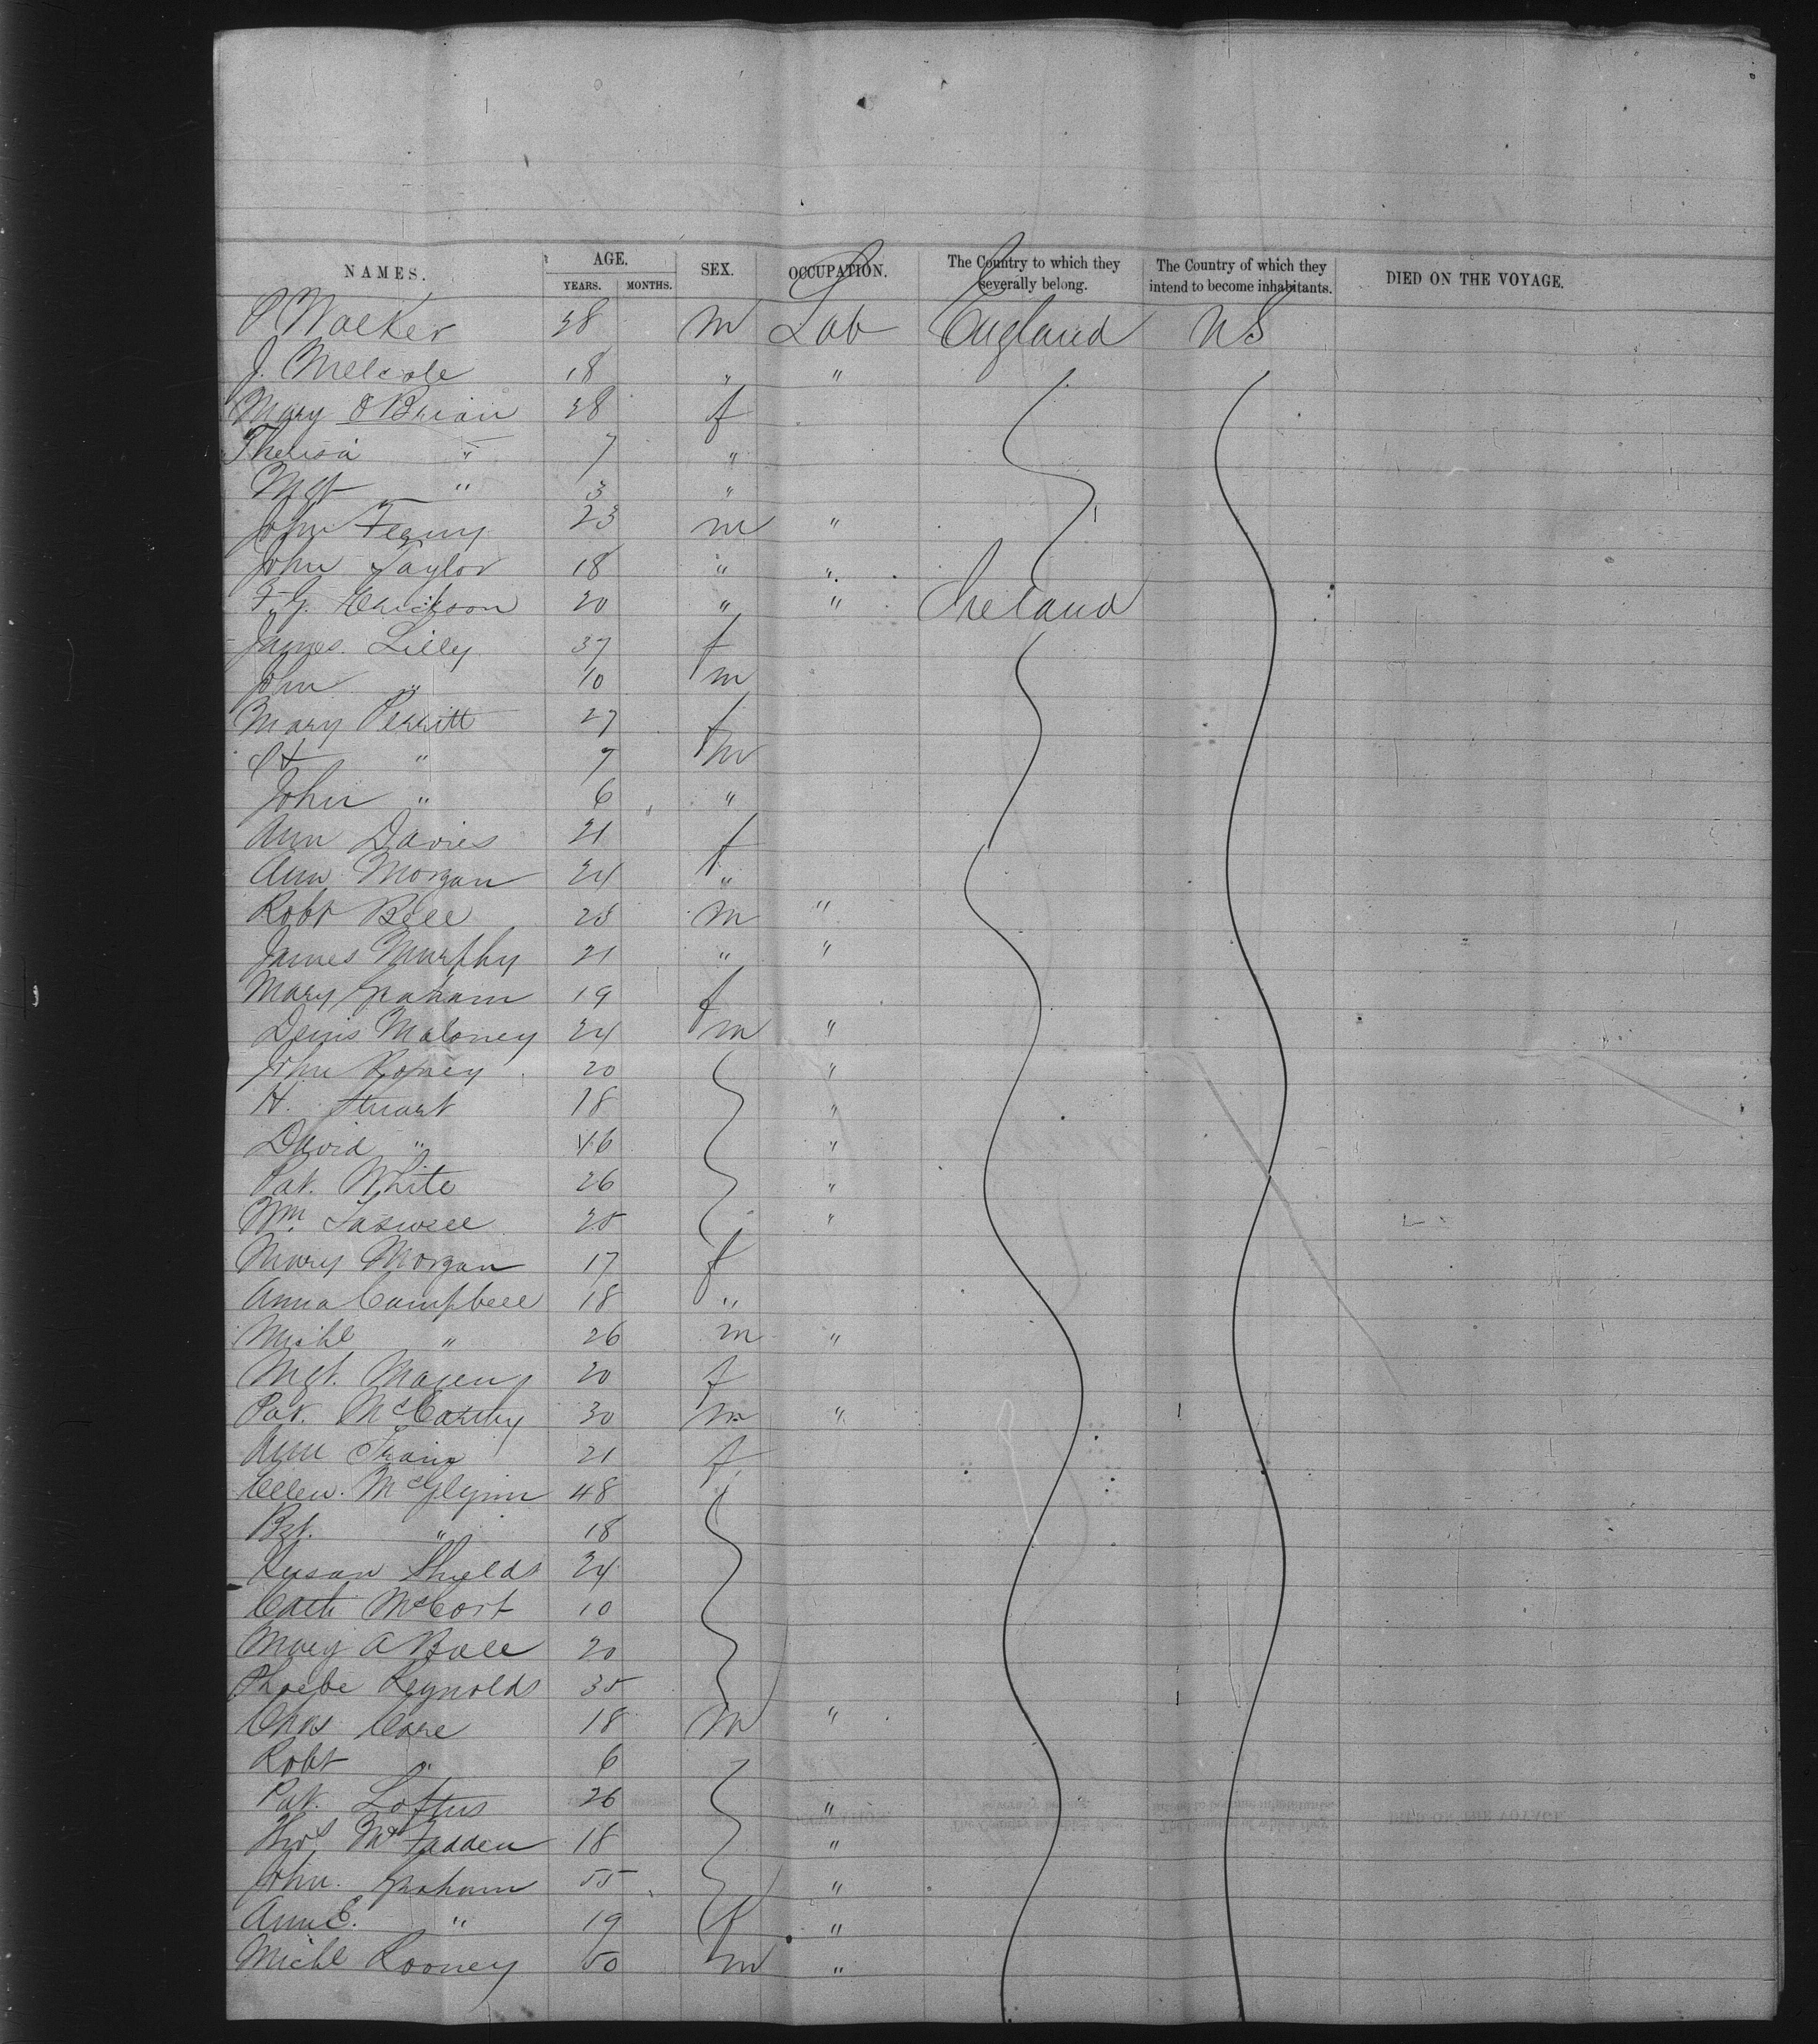 NAMES. AGE. YEARS. MONTHS. SEX. OCCUPATION. The Country to which they severally belong. The Country of which they intend to become inhabitants. DIED ON THE VOYAGE.
P Walker 38 m Lab England US
J. 18 " "
Mary O Brian 38 f
Theresa " 7 "
Mgt " 3 "
John 23 m "
John Taylor 18 " "
F. G. 20 " " Ireland
James Lilly 37 f
John " 10 m
Mary Perritt 27 f
" 7 m
John " 6 "
Ann Davies 21 f
Ann Morgan 24 "
Robt Bell 25 m "
James Murphy 21 " "
Mary Graham 19 f
Denis Maloney 24 m "
John 20 "
H. Stuart 18 "
David " 46 "
Pat. White 26 "
Wm 25 "
Mary Morgan 17 f
Anna Campbell 18 "
Michl " 26 m "
Mgt. 20 f
Pat. McCarthy 30 m "
Ann 21 f
Ellen McGlynn 48 "
Bgt. " 18
Susan Shields 24
Cath McCort 10
Mary A Ball 20
Phoebe Reynolds 35
Chas 18 m "
Robt " 6
Pat. Loftus 26 "
Thos McFadden 18 "
John Graham 55 "
Ann E. " 19 f "
Michl Rooney 50 m "